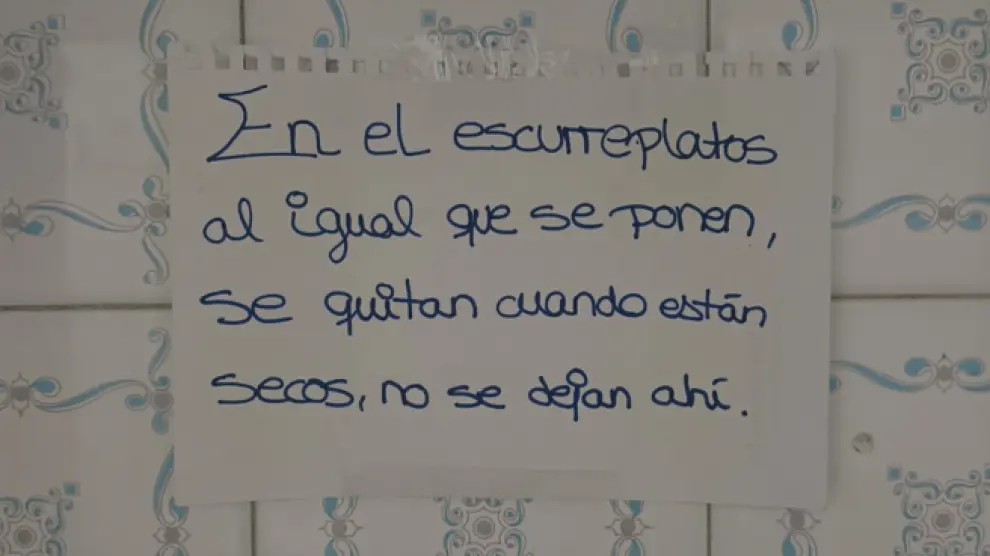 En el escurreplatos
al igual que se ponen,
se quitan cuando están
secos, no se dejan ahí.